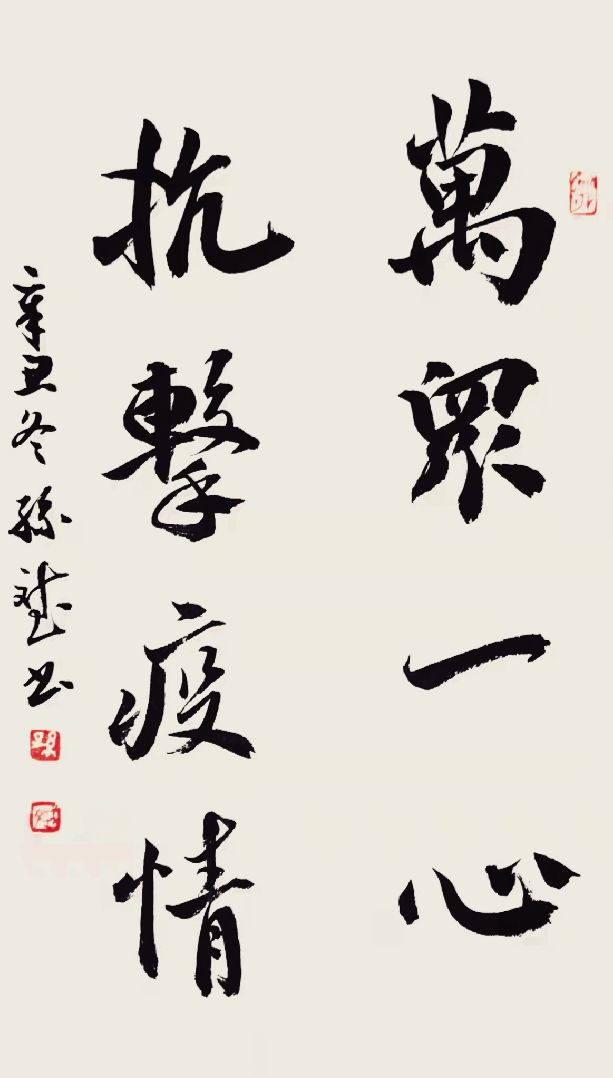 萬眾一心
抗擊疫情
辛丑冬孫斌书